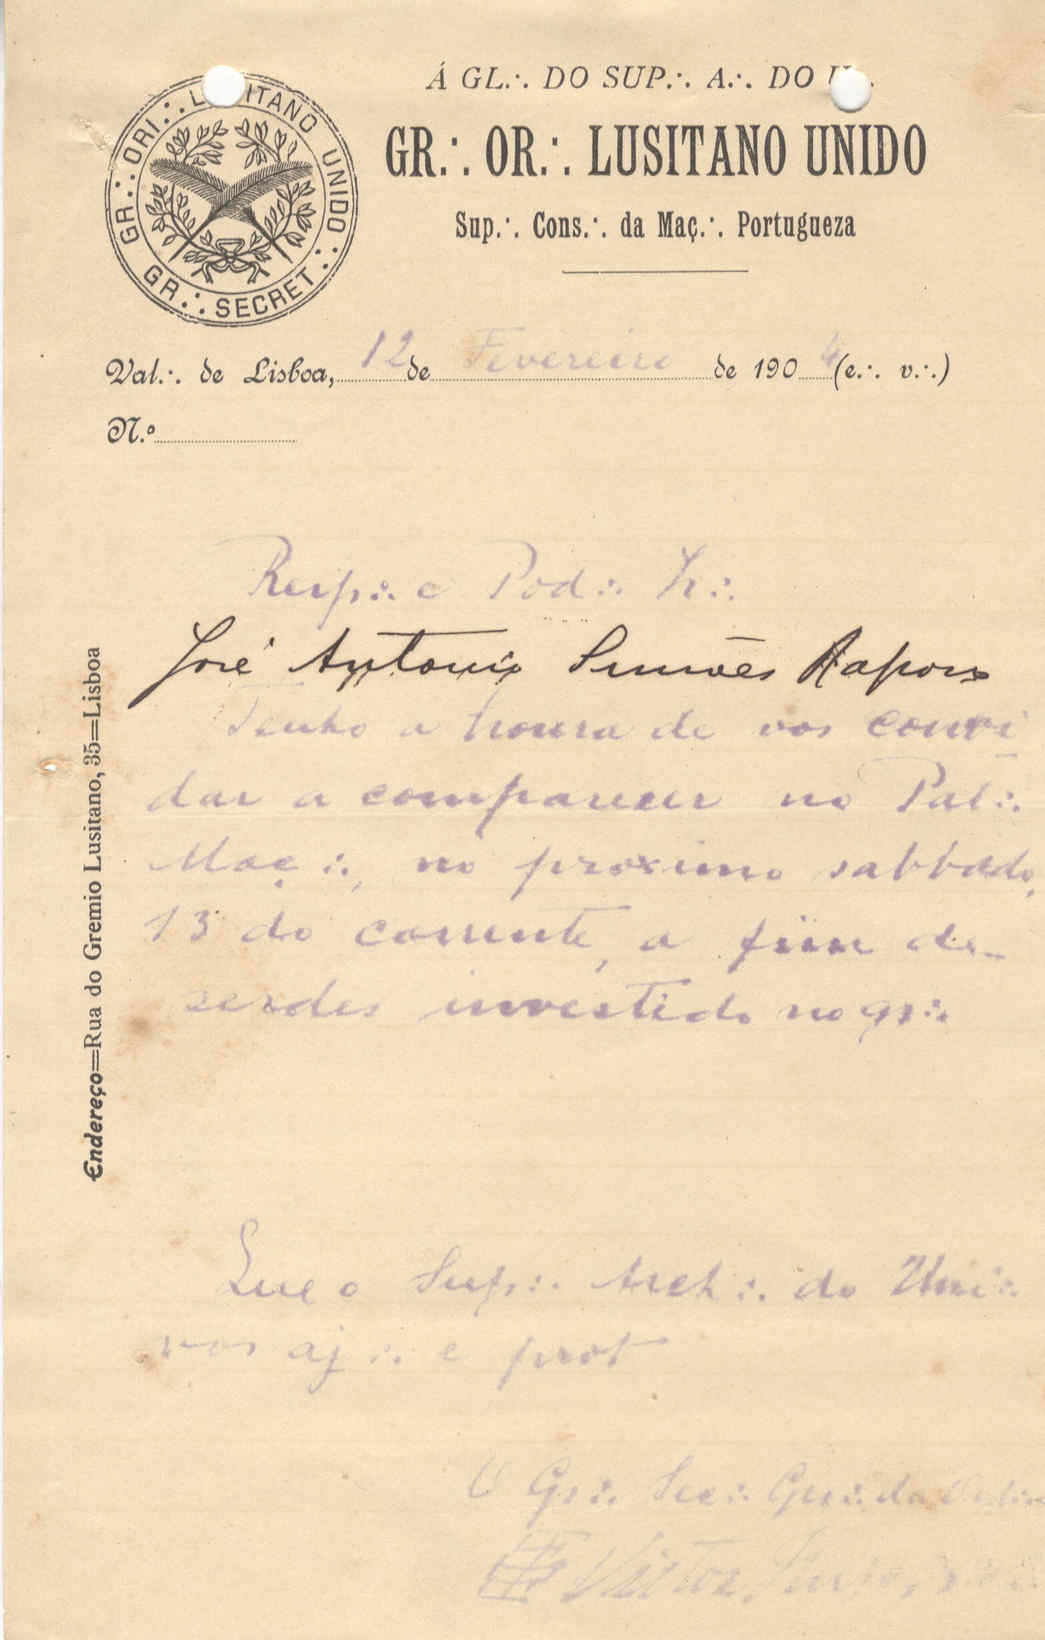 Á GL∴ DO SUP∴ A∴ DO U∴
GR∴ OR∴ LUSITANO UNIDO
Sup∴ Cons∴ da Maç∴ Portugueza
GR∴ ORI∴ LUSITANO UNIDO∴
GR∴ SECRET∴
Val∴ de Lisboa, 12 de Fevereiro de 1904 (e∴ v∴)
N.º
Resp∴ e Pod∴ Ir∴
José Antonio Simões Raposo
Tenho a honra de vos convi
dar a comparecer no Pal∴
Maç∴, no proximo sabbado,
13 do corrente, a fim de
serdes investido no gr∴
Que o Sup∴ Arch∴ do Uni∴
vos aj∴ e prot
O Gr∴ Sec∴ Ger∴ da Ordem
Victor
Endereço=Rua do Gremio Lusitano, 35=Lisboa